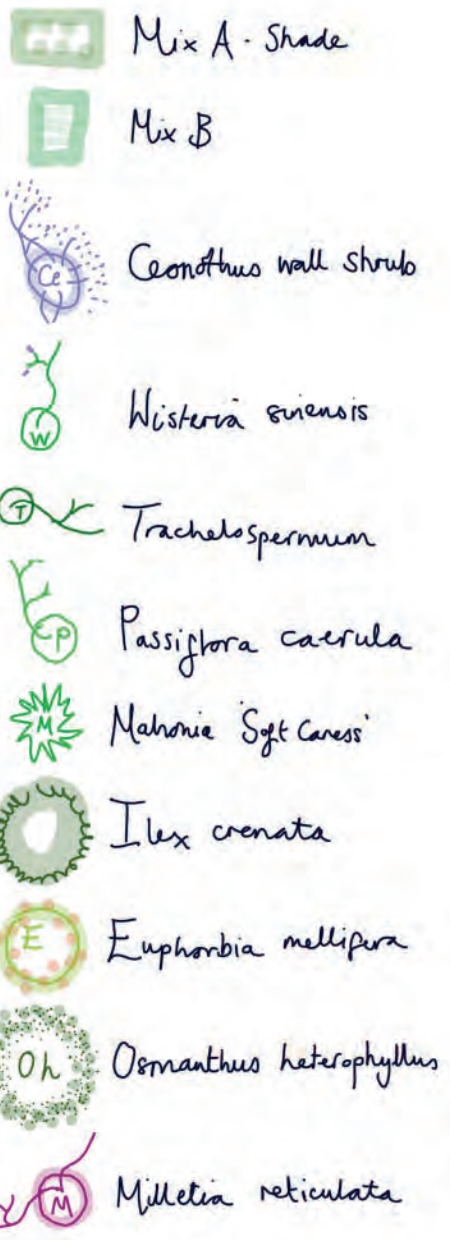 Mix A - Shade
Mix B
Ce Ceonothus wall shrub
W Wisteria siniensis
T Trachelospermum
P Passiflora caerula
M Mahonia 'Soft Caress'
Ilex crenata
E Euphorbia mellifera
Oh Osmanthus heterophyllus
M Milletia reticulata